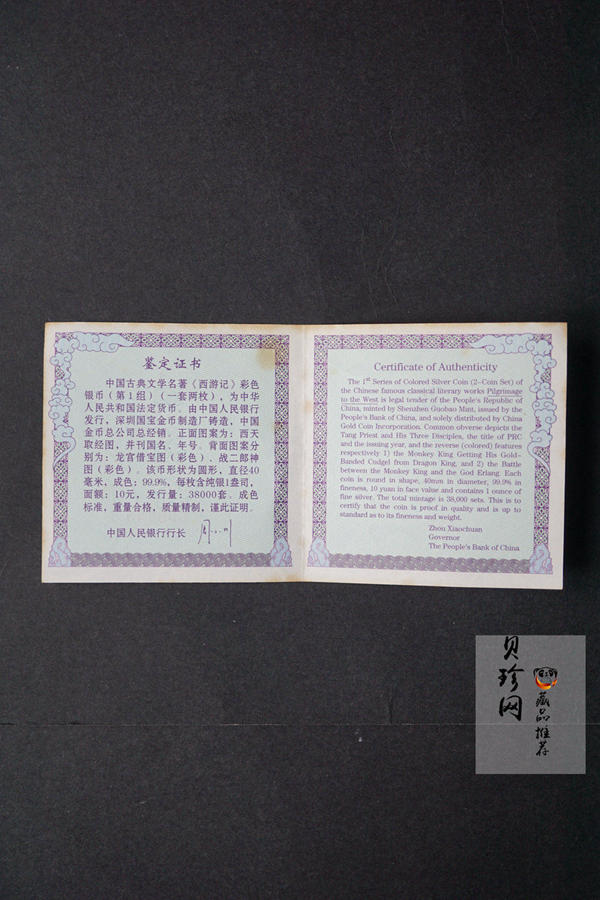 鉴定证书
中国古典文学名著《西游记》彩色
银币（第1组）（一套两枚），为中华
人民共和国法定货币。由中国人民银行
发行，深圳国宝金币制造厂铸造，中国
金币总公司总经销。正面图案为：西天
取经图，并刊国名、年号。背面图案分
别为：龙宫借宝图（彩色）、战二郎神
图（彩色）。该币形状为圆形，直径40
毫米，成色：99.9%，每枚含纯银1盎司，
面额：10元，发行量：38000套。成色
标准，重量合格，质量精制，谨此证明。
中国人民银行行长
Certificate of Authenticity
The 1st Series of Colored Silver Coin (2-Coin Set) of
the Chinese famous classical literary works Pilgrimage
to the West is legal tender of the People's Republic of
China, minted by Shenzhen Guobao Mint, issued by the
People's Bank of China, and solely distributed by China
Gold Coin Incorporation. Common obverse depicts the
Tang Priest and His Three Disciples, the title of PRC
and the issuing year, and the reverse (colored) features
respectively 1) the Monkey King Getting His Gold-
Banded Cudgel from Dragon King, and 2) the Battle
between the Monkey King and the God Erlang. Each
coin is round in shape, 40mm in diameter, 99.9% in
fineness, 10 yuan in face value and contains 1 ounce of
fine silver. The total mintage is 38,000 sets. This is to
certify that the coin is proof in quality and is up to
standard as to its fineness and weight.
Zhou Xiaochuan
Governor
The People's Bank of China
贝珍网
藏品推荐